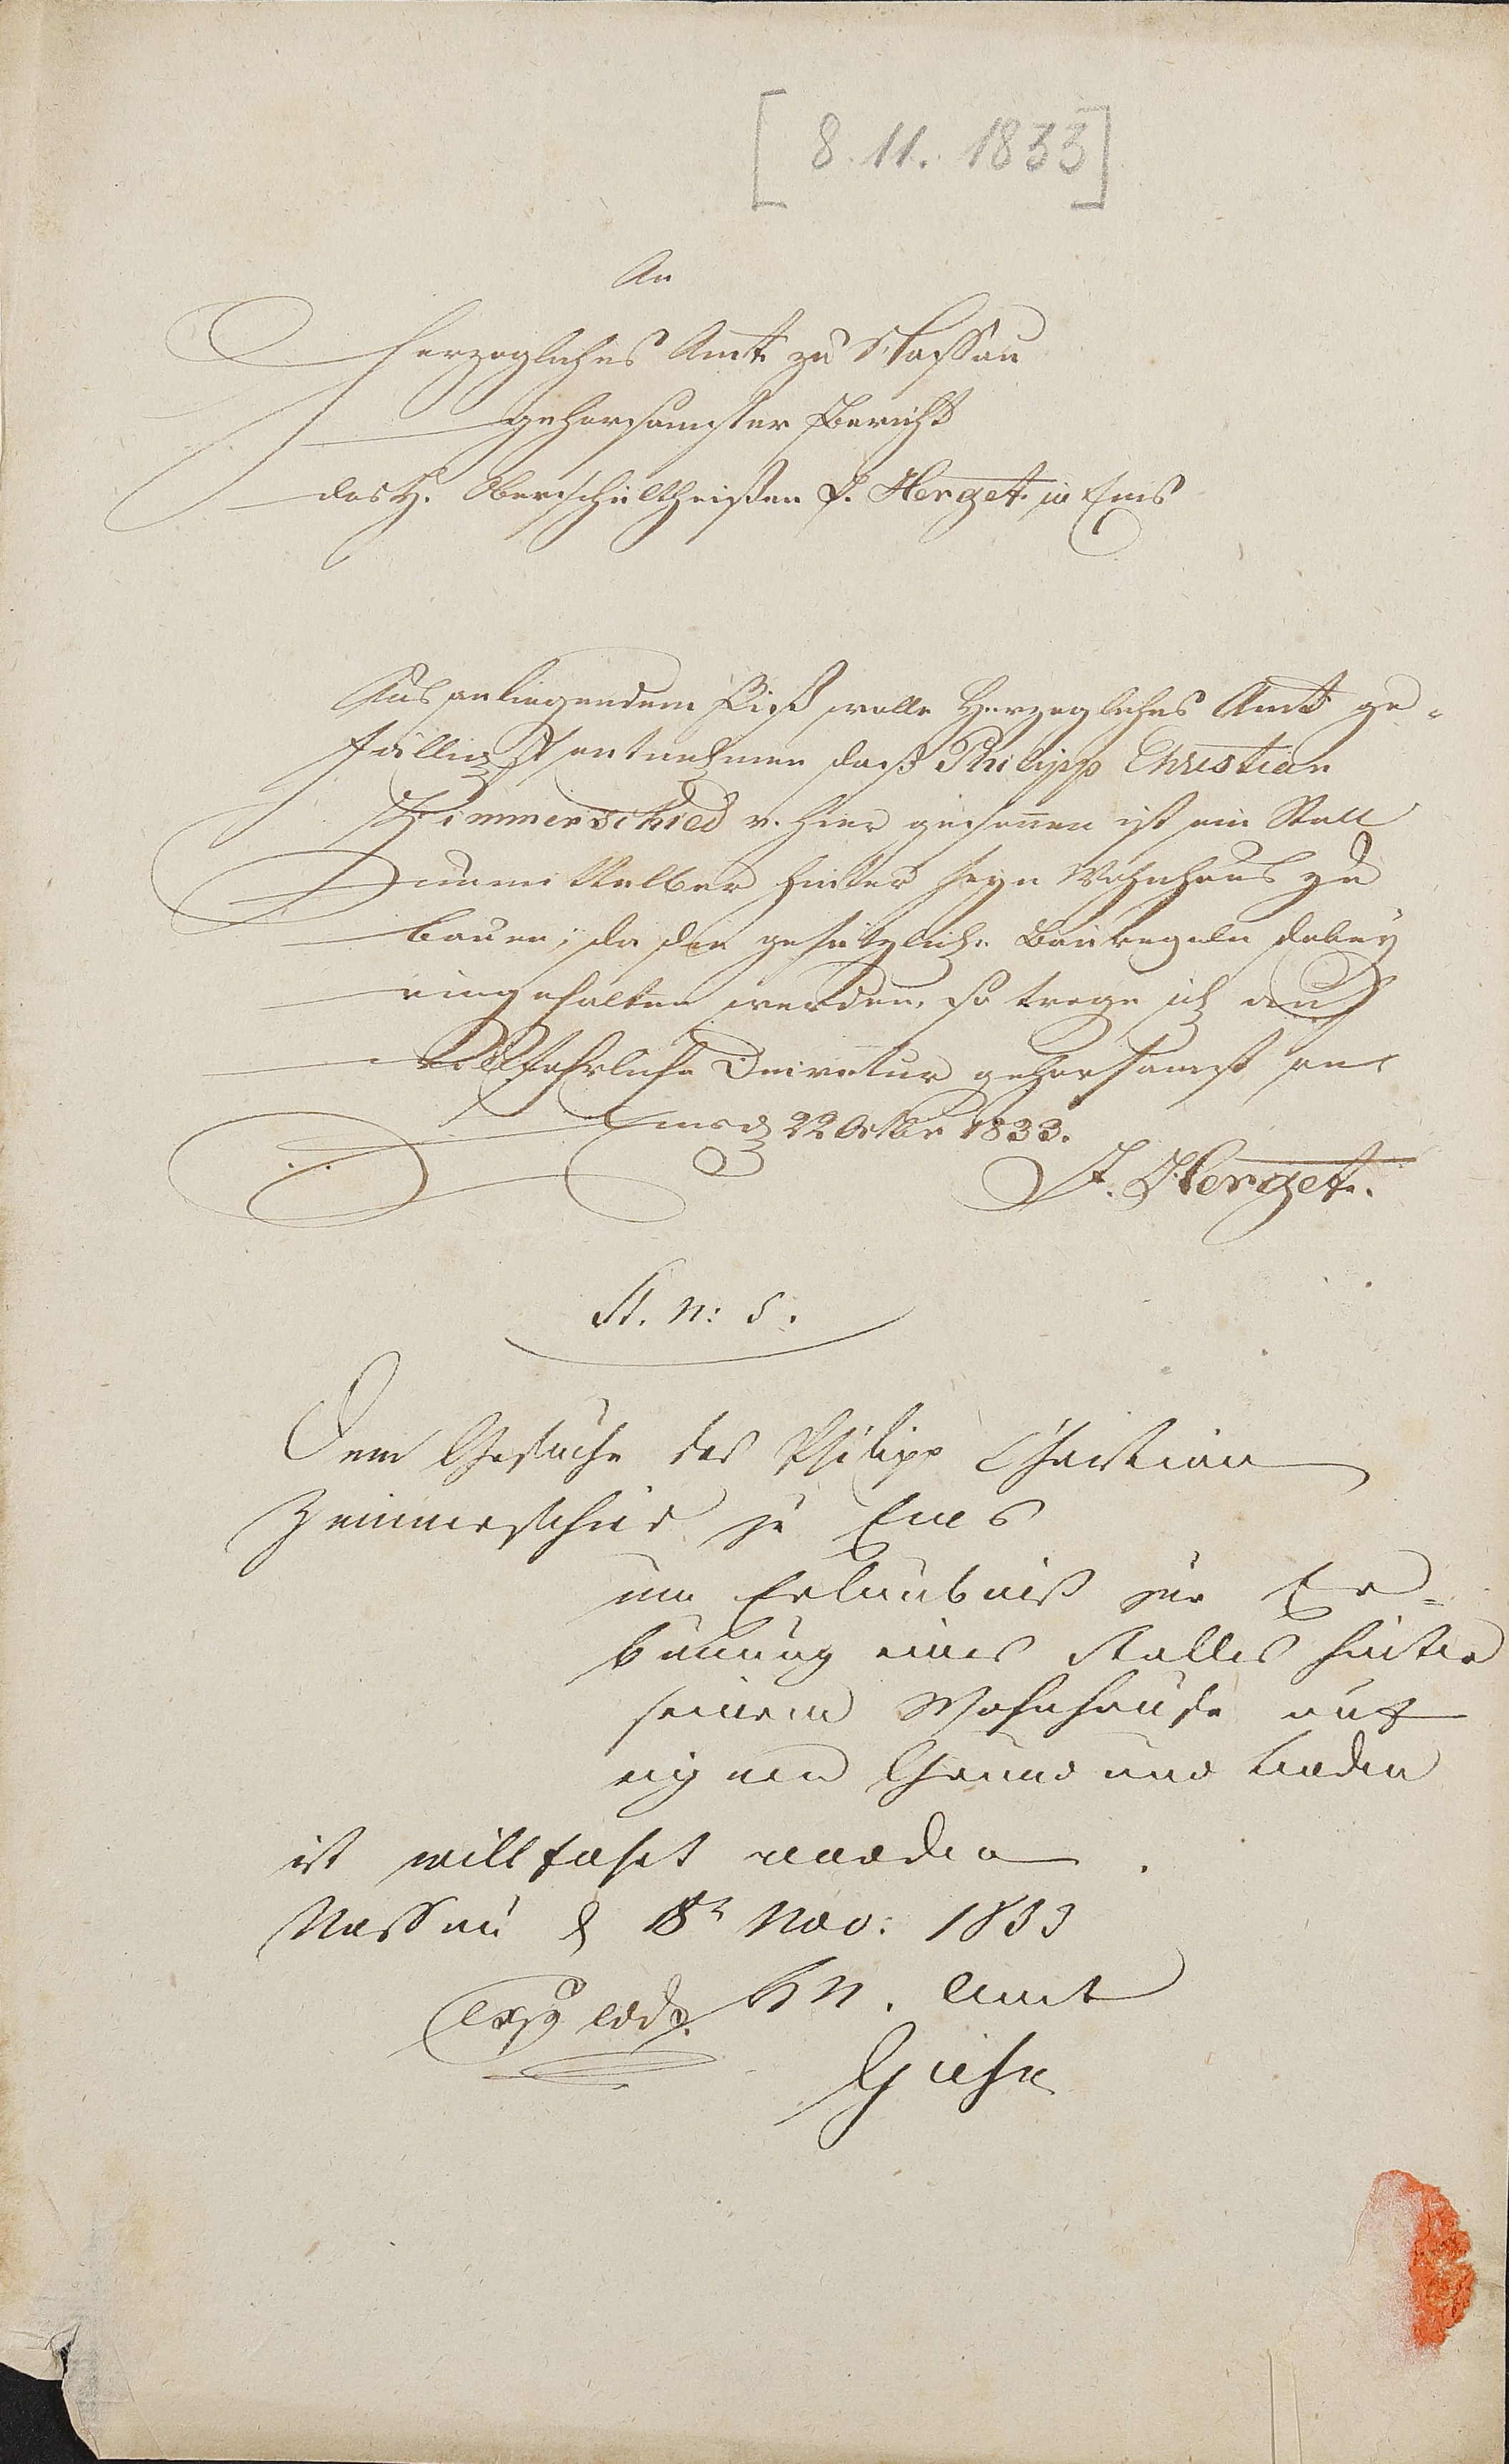 [8.11.1833]
An
Herzogliches Amt zu Nassau
gehorsamster Bericht
des H. Oberschultheißen J. Herget in Ems
Aus anliegendem Riß wolle Herzogliches Amt ge-
fälligst entnehmen daß Philipp Christian
Zimmerschied v. hier gesonnen ist ein Stall
unmittelbar hinter seyn Wohnhaus zu
bauen; da die gesetzliche Bauregeln dabey
eingehalten werden, so trage ich auf
willfahrliche Decretur gehorsamst an
Ems d 22 Octbr 1833.
J. Herget.
St. N: 5.
Dem Gesuche des Philipp Christian
Zimmerschied zu Ems
um Erlaubniß zur Er=
bauung eines Stalles hinter
seinem Wohnhause auf
eignem Grund und Boden
ist willfahrt worden.
Nassau d 8t Nov: 1833
HN. Amt